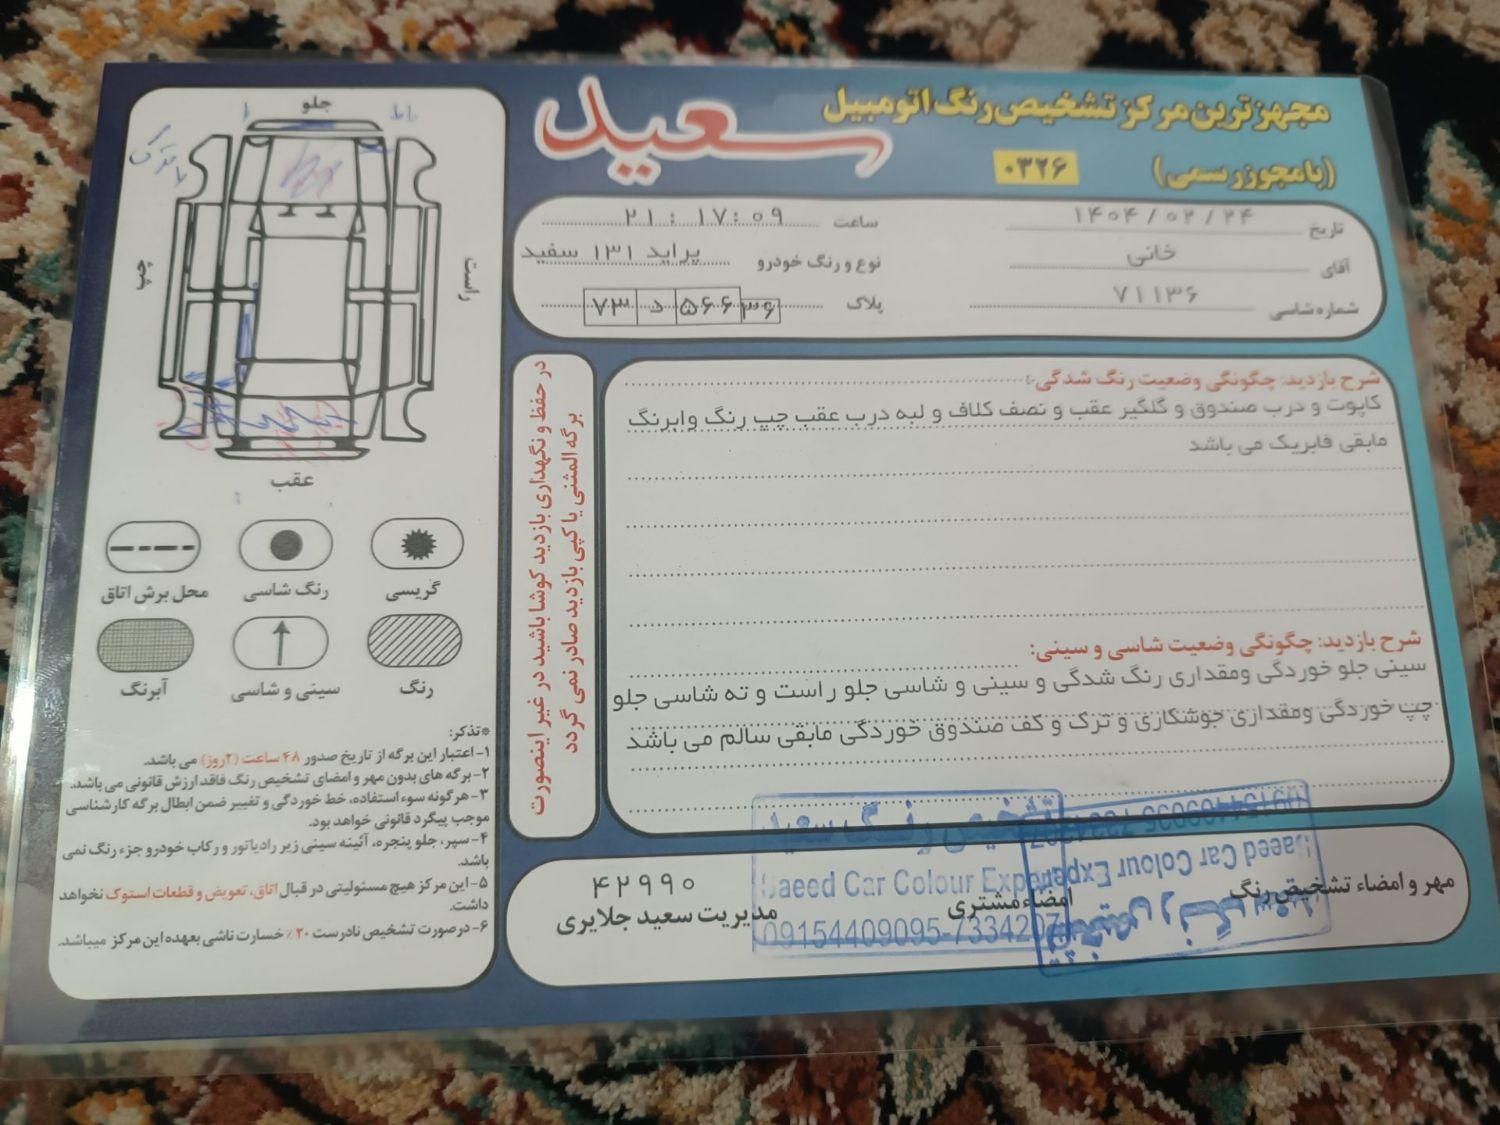 مجهزترین مرکز تشخیص رنگ اتومبیل
سعید
(با مجوز رسمی)
۰۳۲۶
تاریخ ۱۴۰۴/۰۲/۲۴
ساعت ۲۱:۱۷:۰۹
آقای خانی
نوع و رنگ خودرو پراید ۱۳۱ سفید
شماره شاسی ۷۱۱۳۶
پلاک ۷۳ د ۵۶۶ ۳۶
شرح بازدید: چگونگی وضعیت رنگ شدگی:
کاپوت و درب صندوق و گلگیر عقب و نصف کلاف و لبه درب عقب چپ رنگ وابرنگ
مابقی فابریک می باشد
شرح بازدید: چگونگی وضعیت شاسی و سینی:
سینی جلو خوردگی ومقداری رنگ شدگی و سینی و شاسی جلو راست و ته شاسی جلو
چپ خوردگی ومقداری جوشکاری و ترک و کف صندوق خوردگی مابقی سالم می باشد
در حفظ و نگهداری بازدید کوشا باشید در غیر اینصورت
برگه المثنی یا کپی بازدید صادر نمی گردد
جلو
چپ
راست
عقب
گریسی
رنگ شاسی
محل برش اتاق
رنگ
سینی و شاسی
آبرنگ
*تذکر:
۱- اعتبار این برگه از تاریخ صدور ۴۸ ساعت (۲روز) می باشد.
۲- برگه های بدون مهر و امضای تشخیص رنگ فاقد ارزش قانونی می باشد.
۳- هرگونه سوء استفاده، خط خوردگی و تغییر ضمن ابطال برگه کارشناسی
موجب پیگرد قانونی خواهد بود.
۴- سپر، جلو پنجره، آئینه سینی زیر رادیاتور و رکاب خودرو جزء رنگ نمی
باشد.
۵- این مرکز هیچ مسئولیتی در قبال اتاق، تعویض و قطعات استوک نخواهد
داشت.
۶- درصورت تشخیص نادرست ۲۰٪ خسارت ناشی بعهده این مرکز میباشد.
مهر و امضاء تشخیص رنگ
امضاء مشتری
۴۲۹۹۰
مدیریت سعید جلایری
تشخیص رنگ سعید
Saeed Car Colour Expert
09154409095-7334207
تشخیص رنگ سعید
Saeed Car Colour Expert